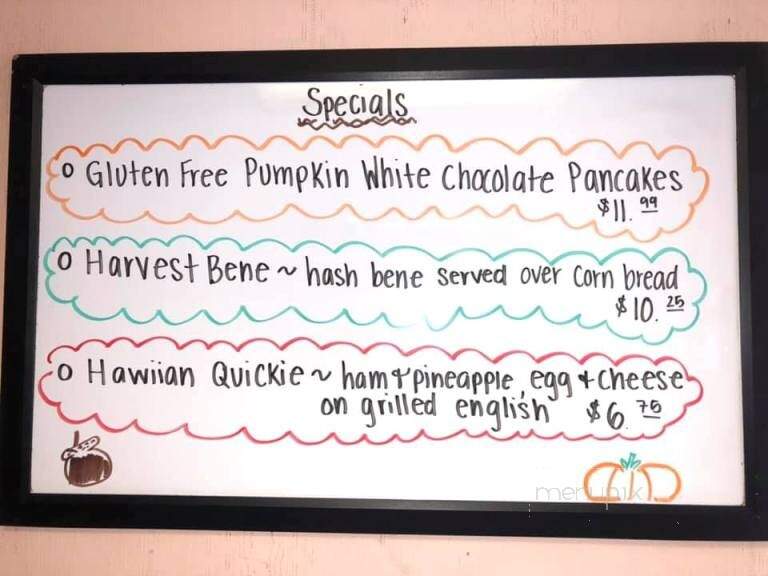 Specials
o Gluten Free Pumpkin White Chocolate Pancakes
$11.99
o Harvest Bene ~ hash bene served over corn bread
$10.25
o Hawiian Quickie ~ ham + pineapple, egg + cheese
on grilled english $6.75
menupix